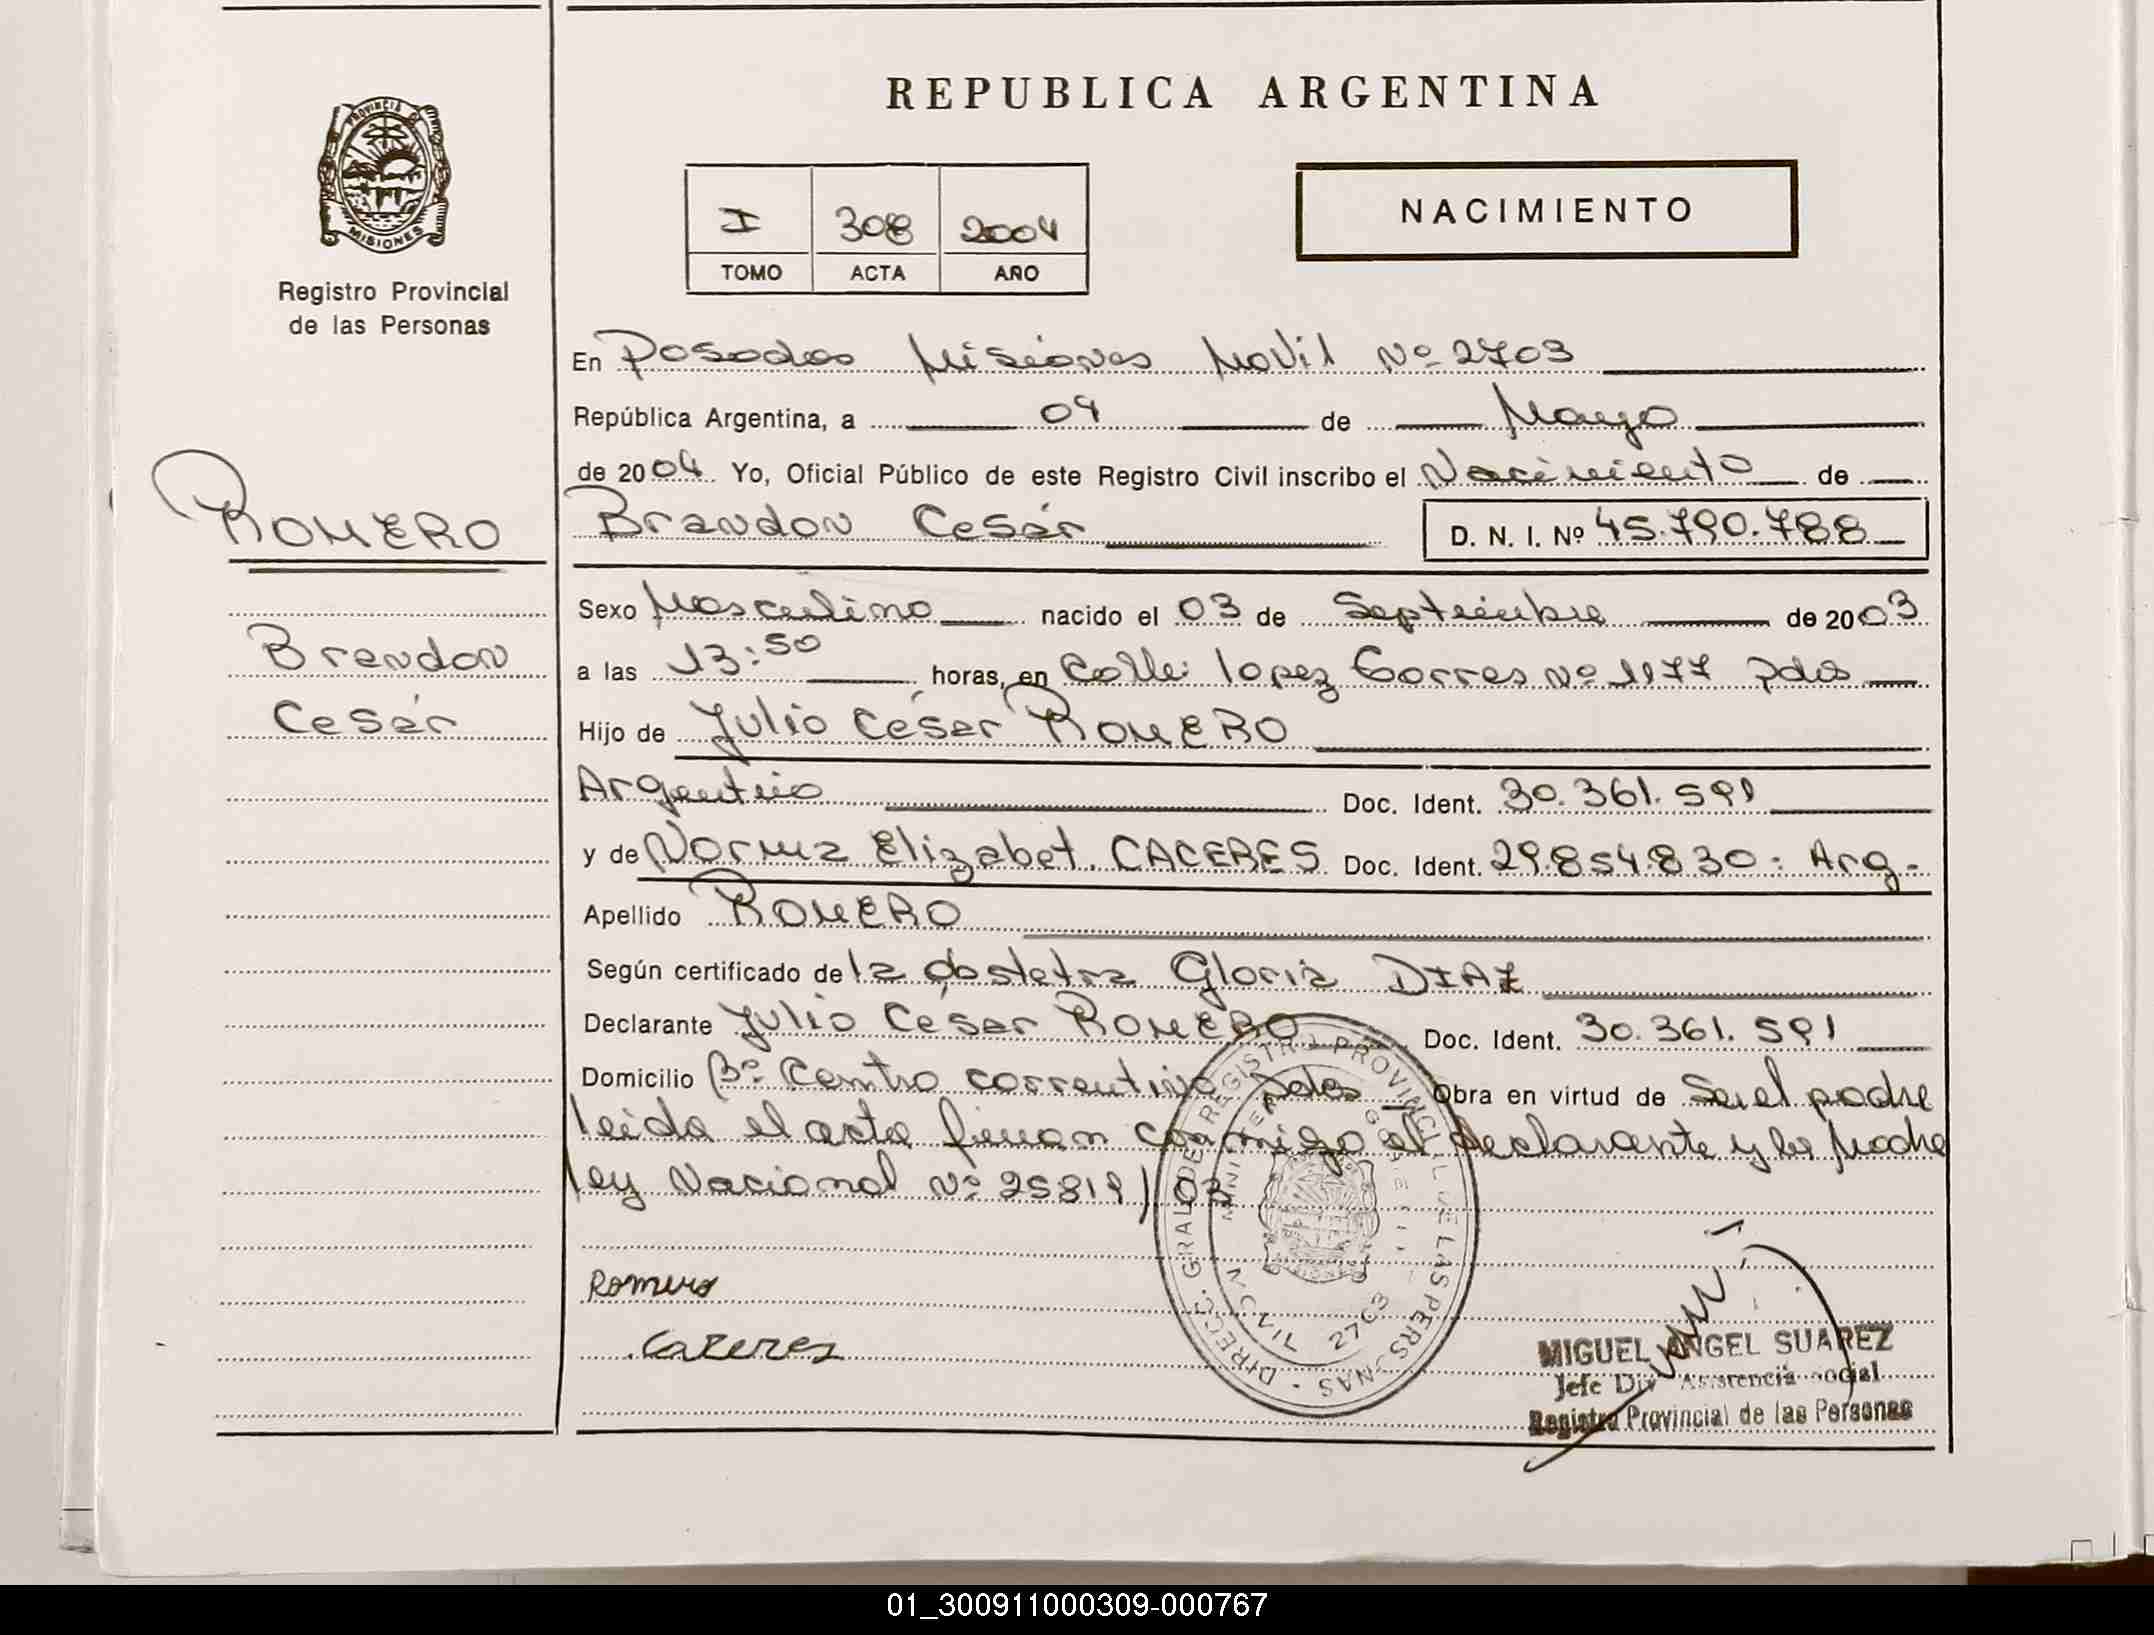 REPUBLICA ARGENTINA
PROVINCIA DE
MISIONES
Registro Provincial
de las Personas
I 308 2004
TOMO ACTA AÑO
NACIMIENTO
En Posadas Misiones Movil Nº 2703
República Argentina, a 04 de Mayo
de 2004 Yo, Oficial Público de este Registro Civil inscribo el Nacimiento de
ROMERO
Brandon Cesár D. N. I. Nº 45.790.788
Sexo Masculino nacido el 03 de Septiembre de 2003
Brandon
Cesár
a las 13:50 horas, en Calle: lopez Torres Nº 1177 pdas
Hijo de Julio César ROMERO
Argentino Doc. Ident. 30.361.591
y de Norma Elizabet. CACERES Doc. Ident. 29.854.830: Arg.
Apellido ROMERO
Según certificado de la obstetra Gloria DIAZ
Declarante Julio César ROMERO Doc. Ident. 30.361.591
Domicilio Bº Centro correntino pdas Obra en virtud de Ser el padre
leida el acta firman conmigo el declarante y la Madre
ley Nacional Nº 25819/03
DIRECC. GRAL. DE REGISTRO PROVINCIAL DE LAS PERSONAS
MOVIL 2703
Romero
Caceres
MIGUEL ANGEL SUAREZ
Jefe Div Asistencia Social
Registro Provincial de las Personas
01_300911000309-000767